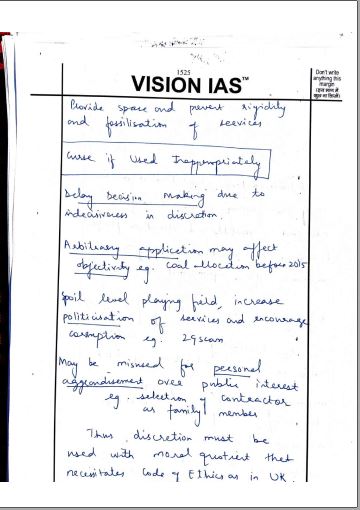 1525
VISION IAS™
Don't write
anything this
margin
Provide space and prevent rigidity
and fossilisation of services
Curse if used Inappropriately
Delay Decision making due to
indecisiveness in discretion.
Arbitrary application may affect
objectivity eg. Coal allocation before 2015
Spoil level playing field, increase
politicisation of services and encourage
corruption eg. 2g scam
May be misused for personal
aggrandisement over public interest
eg. selection of contractor
as family member
Thus discretion must be
used with moral quotient that
necessitates Code of Ethics as in UK.